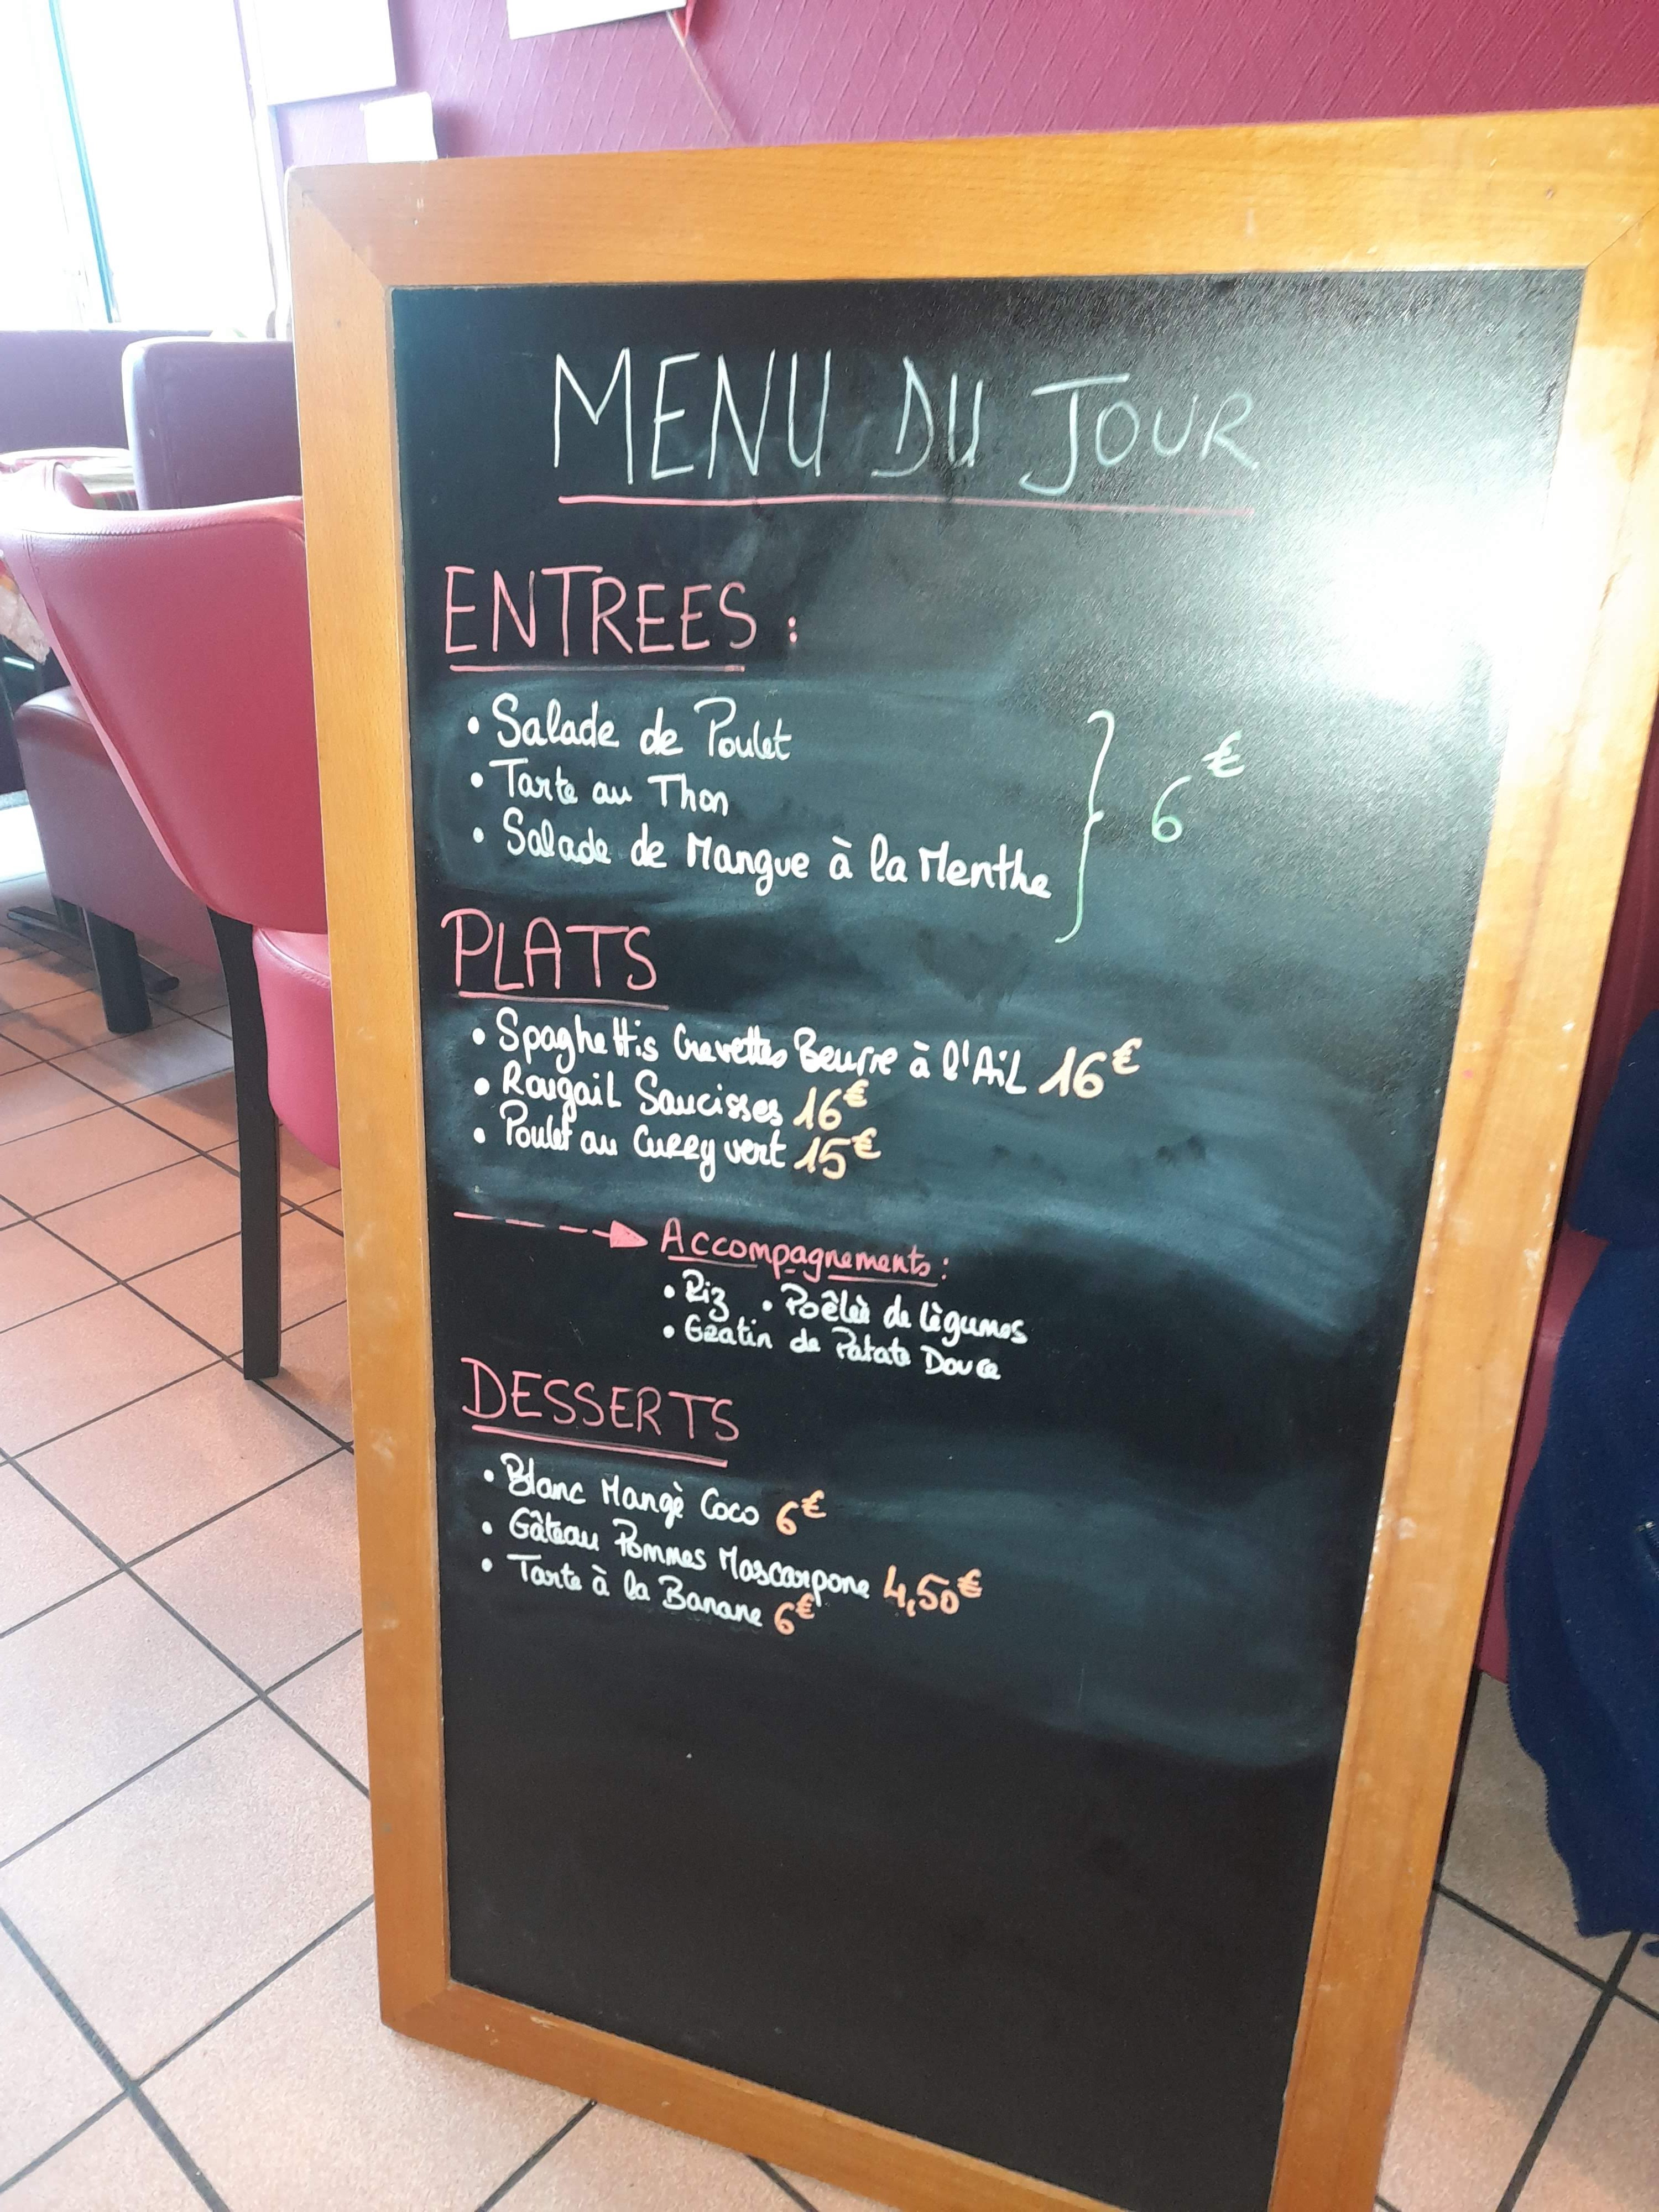 MENU DU JOUR
ENTREES :
• Salade de Poulet
• Tarte au Thon
• Salade de Mangue à la Menthe
} 6€
PLATS
• Spaghettis Crevettes Beurre à l'Ail 16€
• Rougail Saucisses 16€
• Poulet au Curry vert 15€
Accompagnements :
• Riz • Poêlés de lègumes
• Gratin de Patate Douce
DESSERTS
• Blanc Mangè Coco 6€
• Gâteau Pommes Mascarpone 4,50€
• Tarte à la Banane 6€